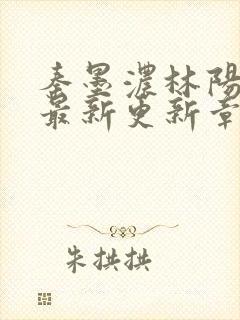 秦墨濃林陽
最新更新章
朱拱拱